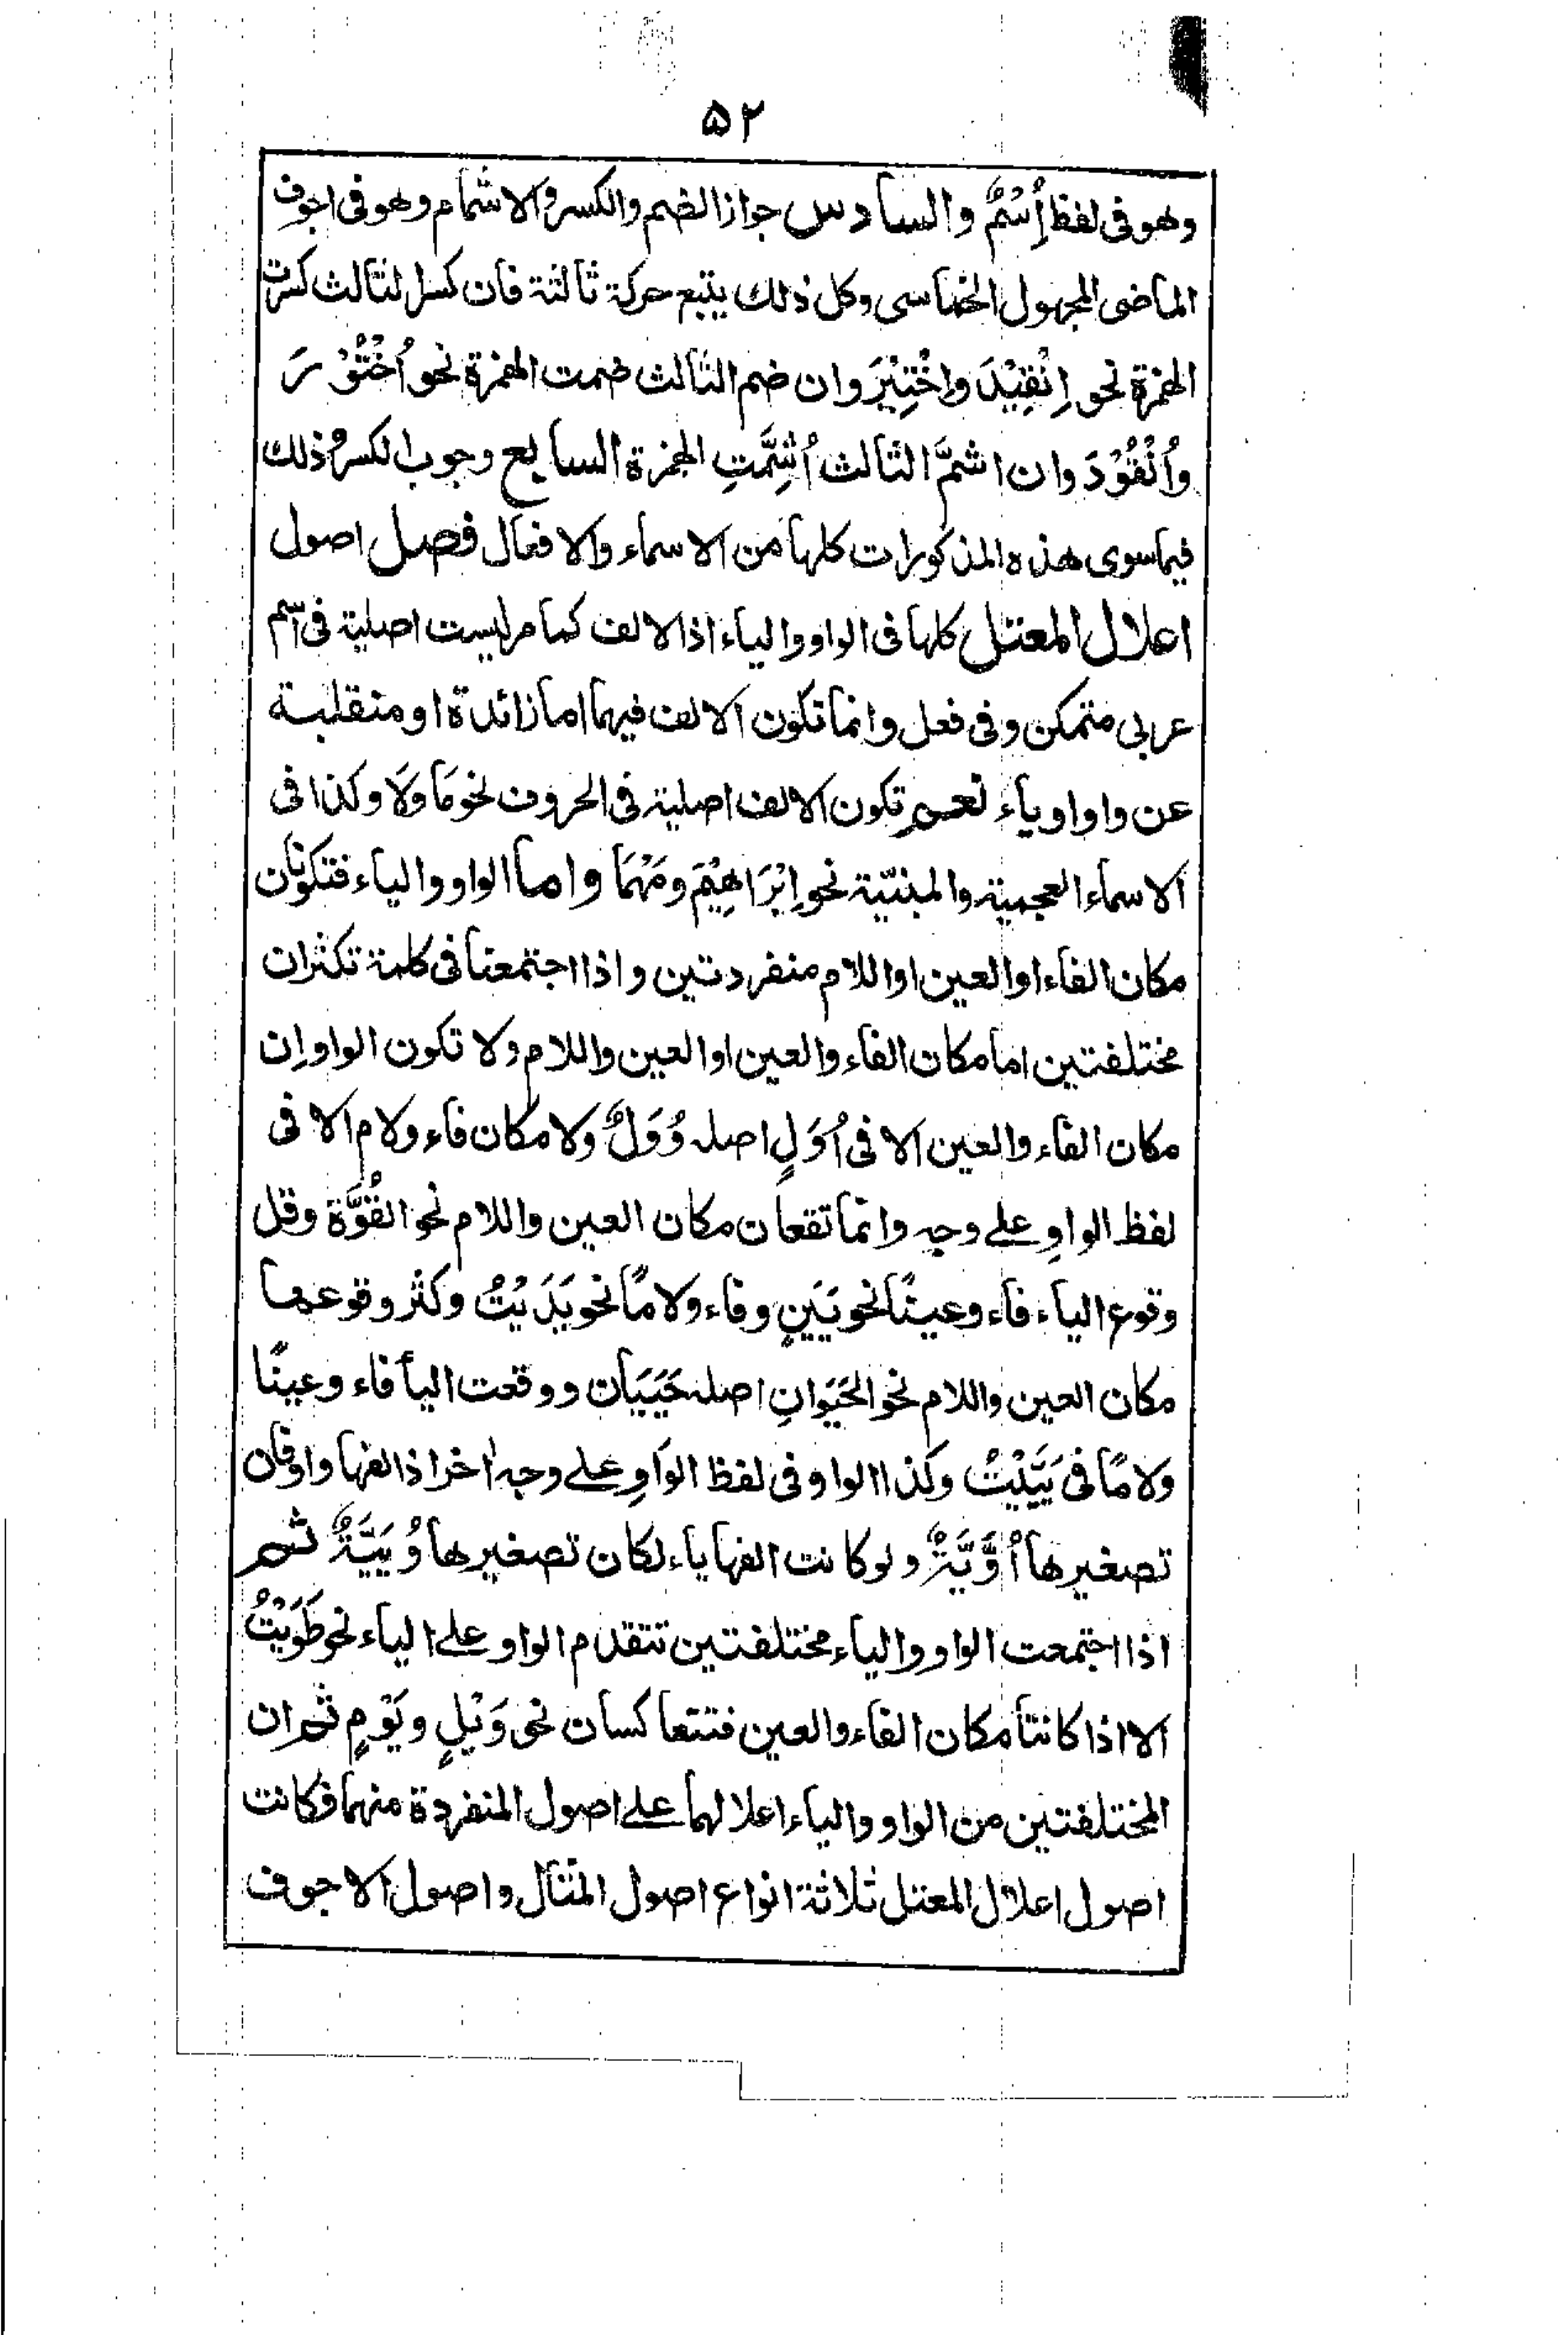 ۵۲
وهو فى لفظ اُِسْمٌ والسادس جواز الضم والكسر والاشمام وهو فى اجوف
الماضى المجهول الخماسى وكل ذلك يتبع حركة ثالثة فان كسر الثالث كسرت
الهمزة نحو اِنْقِيْدَ واخْتِيْرَ وان ضم الثالث ضمت الهمزة نحو اُخْتُوْرَ
واُنْقُوْدَ وان اشمَّ الثالث اُشِمَّتِ الهمزة السابع وجوب الكسر وذلك
فيما سوى هذه المذكورات كلها من الاسماء والافعال فصل اصول
اعلال المعتل كلها فى الواو والياء اذ الالف كما مر ليست اصلية فى اسم
عربى متمكن وفى فعل وانما تكون الالف فيهما اما زائدة او منقلبة
عن واو او ياء نعم تكون الالف اصلية فى الحروف نحو مَا ولَا وكذا فى
الاسماء العجمية والمبنيّة نحو اِبْرَاهِيْمَ ومَهْمَا واما الواو والياء فتكونان
مكان الفاء او العين او اللام منفردتين واذا اجتمعتا فى كلمة تكثران
مختلفتين اما مكان الفاء والعين او العين واللام ولا تكون الواوان
مكان الفاء والعين الا فى اُوَلٍ اصله وُوَلٌ ولا مكان فاء ولام الا فى
لفظ الواوِ علے وجه وانما تقعان مكان العين واللام نحو القُوَّة وقل
وقوع الياء فاء وعينًا نحو يَيَنٍ وفاء ولامًا نحو يَدَيْتُ وكثر وقوعها
مكان العين واللام نحو الحَيَوانِ اصله حَيَيَان ووقعت اليأ فاء وعينًا
ولامًا فى يَيَّيْتُ وكذا الواو فى لفظ الوَاوِ علے وجه اٰخر اذ الفها واو فان
تصغيرها اُوَّيَّةٌ ولو كانت الفها ياء لكان تصغيرها وُيَيَّةٌ ثم
اذا اجتمعت الواو والياء مختلفتين تتقدم الواو علے الياء نحو طَوَيْتُ
الا اذا كانتا مكان الفاء والعين فتتعاكسان نحو وَيْلٍ ويَوْمٍ ثم ان
المختلفتين من الواو والياء اعلالهما علے اصول المنفردة منهما فكانت
اصول اعلال المعتل ثلاثة انواع اصول المثال واصول الاجوف